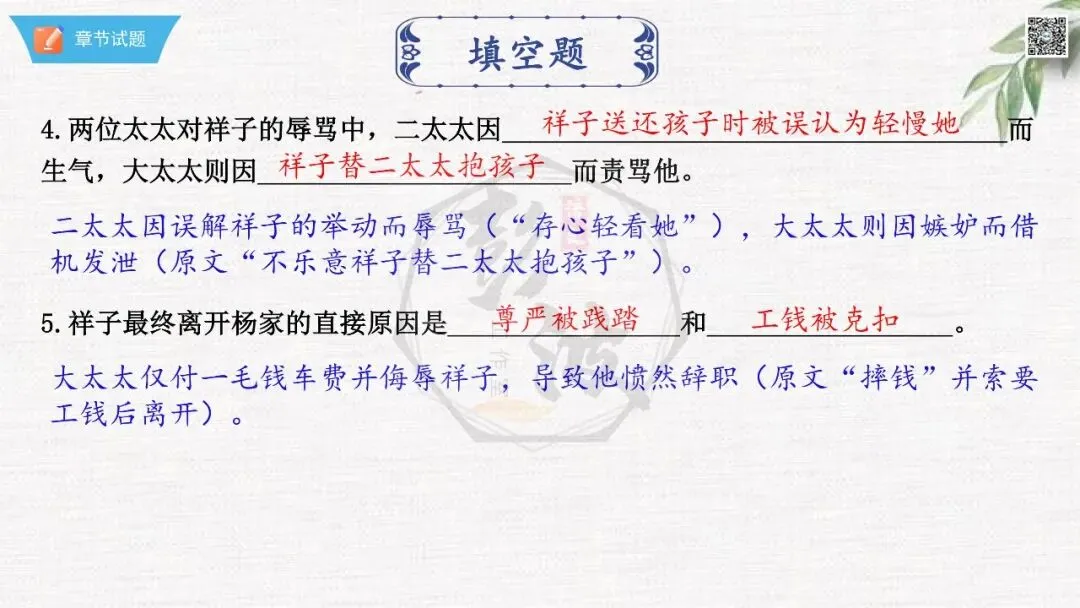 章节试题
填空题
4.两位太太对祥子的辱骂中，二太太因祥子送还孩子时被误认为轻慢她而
生气，大太太则因祥子替二太太抱孩子而责骂他。
二太太因误解祥子的举动而辱骂（“存心轻看她”），大太太则因嫉妒而借
机发泄（原文“不乐意祥子替二太太抱孩子”）。
5.祥子最终离开杨家的直接原因是尊严被践踏和工钱被克扣。
大太太仅付一毛钱车费并侮辱祥子，导致他愤然辞职（原文“摔钱”并索要
工钱后离开）。